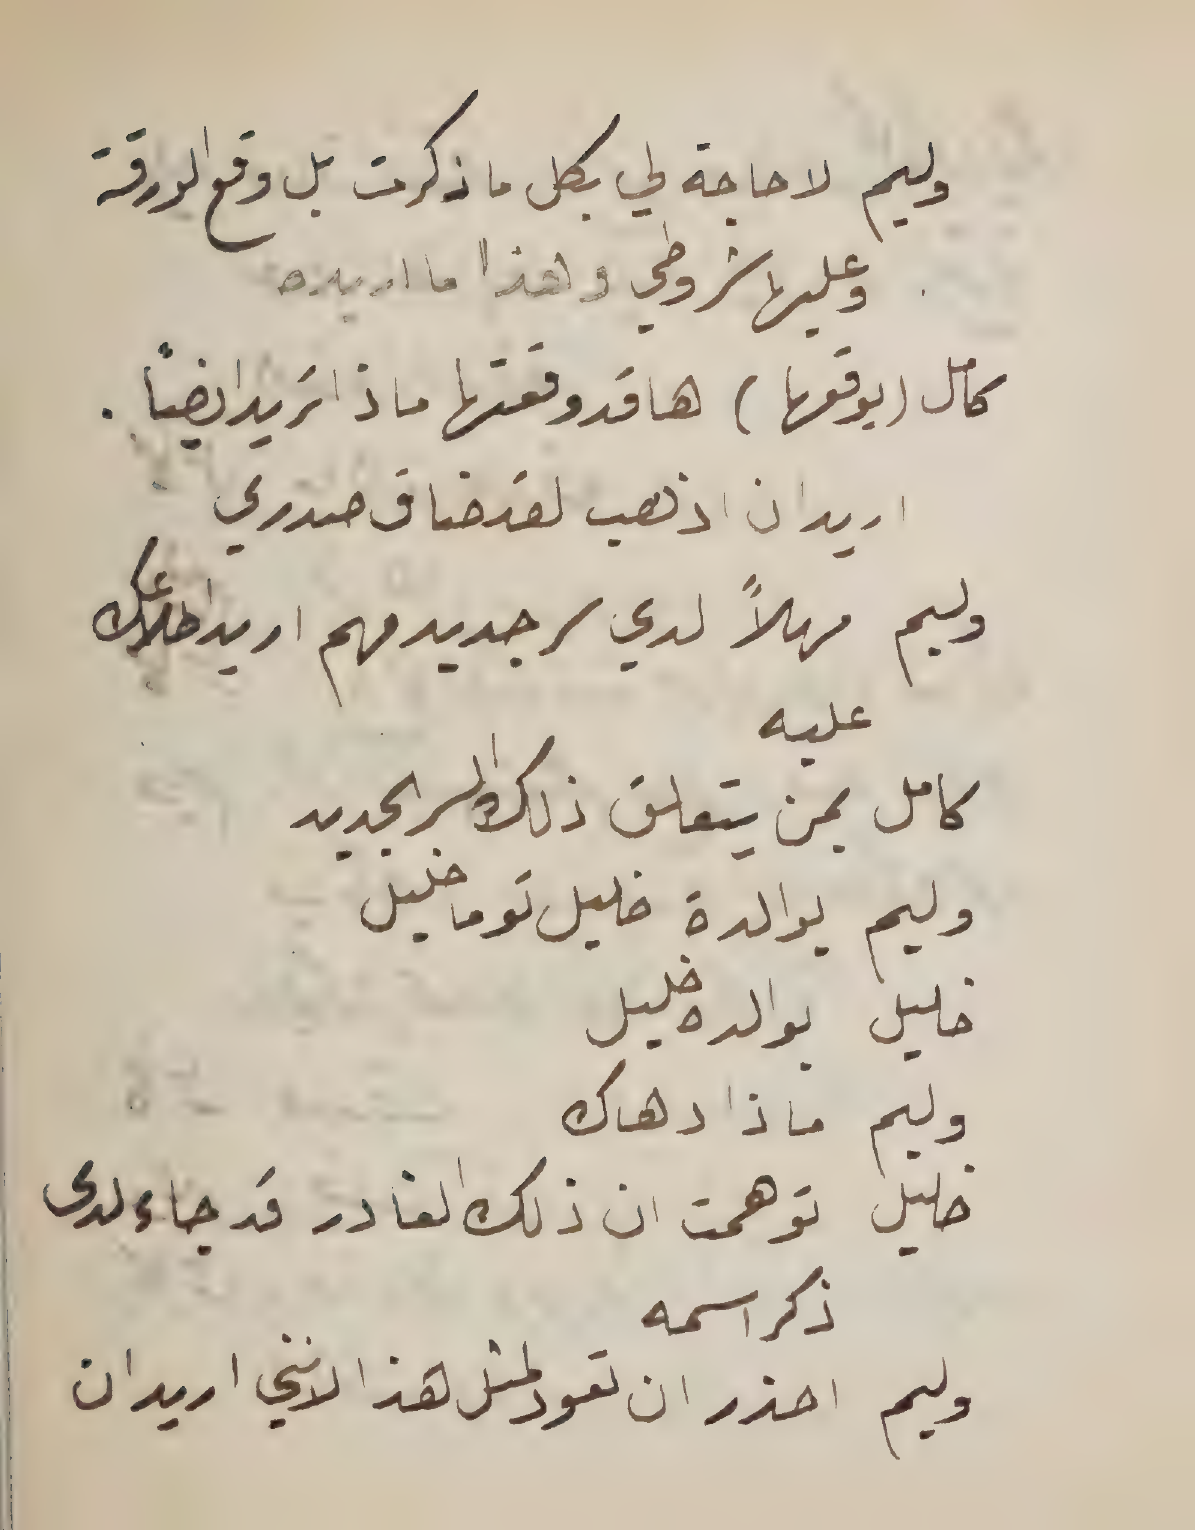 وليم لا حاجة لي بكل ما ذكرت بل وقع الورقة
وعليها شروطي وهذا ما اريده
كامل (يوقعها) ها قد وقعتها ماذا تريد ايضاً .
اريد ان اذهب لقد ضاق صدري
وليم مهلاً لدي سر جديد مهم اريد اطلاعك
عليه
كامل بمن يتعلق ذلك السر الجديد
وليم بوالدة خليل توما خليل
خليل بوالدة خليل
وليم ماذا دهاك
خليل توهمت ان ذلك الغادر قد جاء لدى
ذكر اسمه
وليم احذر ان تعود لمثل هذا لانني اريد ان